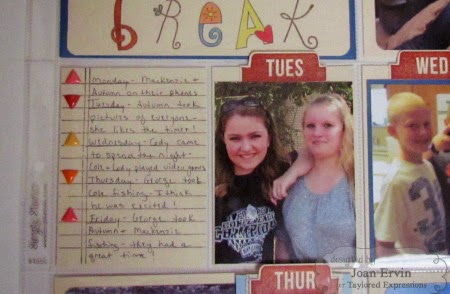 BREAK
TUES
WED
Monday - Mackenzie +
Autumn on their phones
Tuesday - Autumn took
pictures of everyone -
she likes the timer!
Wednesday - Cody came
to spend the night -
Cole + Cody played video games
Thursday - George took
Cole fishing - I think
he was excited!
Friday - George took
Autumn + Mackenzie
fishing - they had a
great time!
CHAMPIONS
THUR
designed by
Joan Ervin
for Taylored Expressions